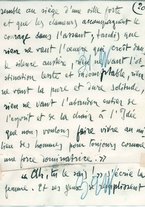 semble au siège d'une ville forte (20
et que les clameurs accompagnent le
courage dans l'avant, tandis que
rien ne vaut l'œuvre que
le silence austère, rien ne vaut l'
obstination lente et
rien ne vaut la pure et dure solitude,
rien ne vaut l'abandon entier de
l'esprit et de la chair à l'Idée
que nous voulons faire vivre au milieu
des hommes pour toujours comme
une force dominatrice. »
« Ah, tu le sais! » s'écria la
femme. Et ses yeux s'emplissaient